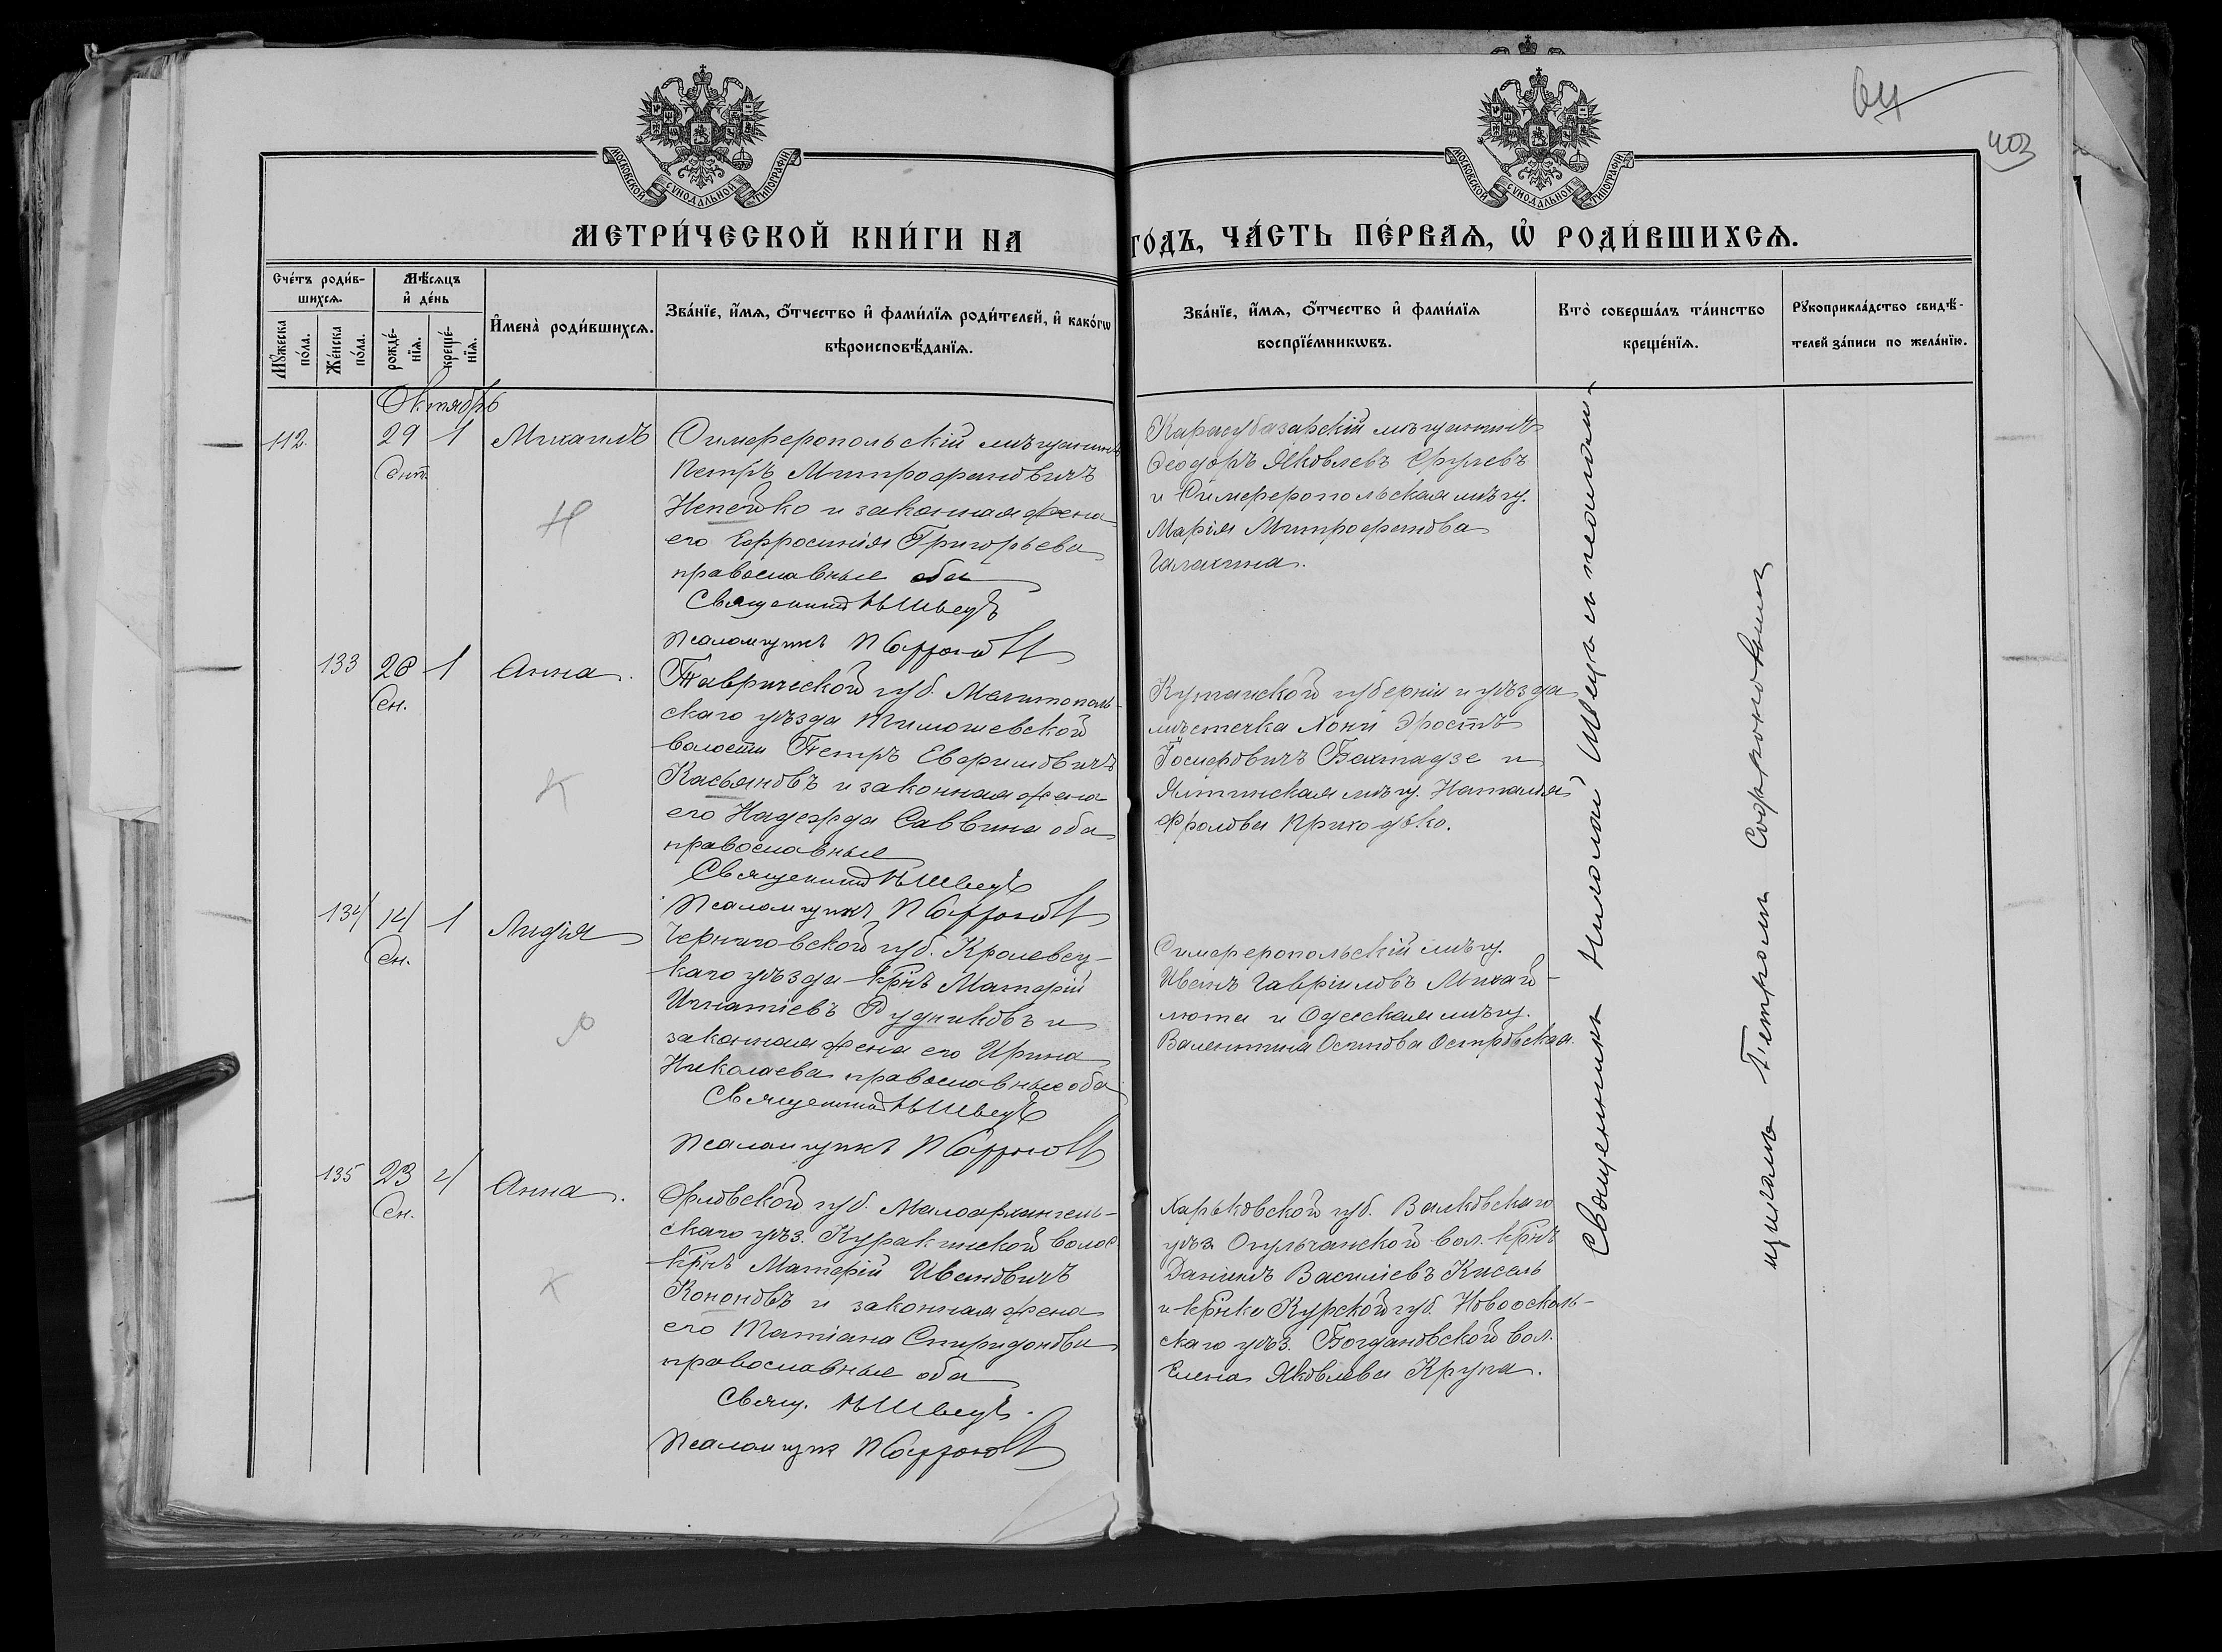 64
403
МОСКОВСКОЙ СѴНОДАЛЬНОЙ ТИПОГРАФІИ
МОСКОВСКОЙ СѴНОДАЛЬНОЙ ТИПОГРАФІИ
МЕТРИ́ЧЕСКОЙ КНИ́ГИ НА ГО́ДЪ, ЧА́СТЬ ПЕ́РВАѦ, Ѡ҆ РОДИ́ВШИХСѦ.
Сче́тъ роди́в-
шихсѧ.
Мꙋ́жеска по́ла.
Же́нска по́ла.
Мѣ́сѧцъ
и҆ де́нь
рожде́-
нїѧ.
креще́-
нїѧ.
И҆мена̀ роди́вшихсѧ.
Зва́нїе, и҆́мѧ, ѻ҆́тчество и҆ фами́лїѧ роди́телей, и҆ како́гѡ
вѣроисповѣ́данїѧ.
Зва́нїе, и҆́мѧ, ѻ҆́тчество и҆ фами́лїѧ
воспрїе́мникѡвъ.
Кто̀ соверша́лъ та́инство
креще́нїѧ.
Рꙋкоприкла́дство свидѣ́-
телей за́писи по жела́нїю.
Октябрь
112. 29 1 Михаилъ
Сент.
Н
Симферопольскій мѣщанинъ
Петръ Митрофановичъ
Непейко и законная жена
его Ефросинія Григорьева
православные оба
Священникъ Н Швецъ
Псаломщикъ П Софроно
Карасубазарскій мѣщанинъ
Ѳеодоръ Яковлевъ
и Симферопольская мѣщ.
Марія Митрофанова
Галахина.
133 28 1 Анна.
Сен.
К
Таврической губ. Мелитополь-
скаго уѣзда Тимошевской
волости Петръ Евфимовичъ
Касьяновъ и законная жена
его Надежда Саввина оба
православные
Священникъ Н Швецъ
Псаломщикъ П Софроно
Кутаиской губерніи и уѣзда
мѣстечка Хони Эростъ
Іосифовичъ Бахтадзе и
Ялтинская мѣщ. Наталія
Фролова Приходько.
134 14 1 Лидія
Сен.
Р
Черниговской губ. Кролевец-
каго уѣзда кр̃нъ Матѳій
Игнатіевъ Рудниковъ и
законная жена его Ирина
Николаева православные оба
Священникъ Н Швецъ
Псаломщикъ П Софроно
Симферопольскій мѣщ.
Иванъ Гавріиловъ Михай-
люта и Одесская мѣщ.
Валентина Осипова Островская.
135 23 4 Анна.
Сен.
К
Орловской губ. Малоархангель-
скаго уѣз. Куракинской волос.
кр̃нъ Матѳій Ивановичъ
Кононовъ и законная жена
его Татіана Спиридонова
православные оба
Свящ. Н Швецъ.
Псаломщик П Софроно
Харьковской губ. Валковскаго
уѣз. Огульчанской вол. кр̃нъ
Даніилъ Василіевъ Кисель
и кр̃нка Курской губ. Новоосколь-
скаго уѣз. Богдановской вол.
Елена Яковлева Крупа.
Священникъ Николай Швецъ съ псалом-
щикомъ Петромъ Софроновымъ